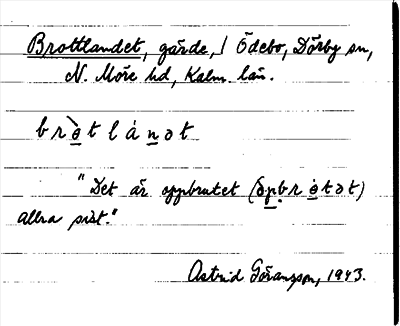 Brottlandet, gärde, / Ödebo, Dörby sn,
N. Möre hd, Kalm. län.
br&#242;tlánət
"Det är uppbrutet (òp.brótət)
allra sist."
Astrid Göransson, 1943.